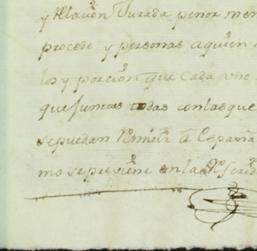 y Relacion Jurada penor men
procede y personas aquien
los y porcion que cada vno
que juntas todas con las que
sepuedan Remitir a España
mo se previene en las Rs